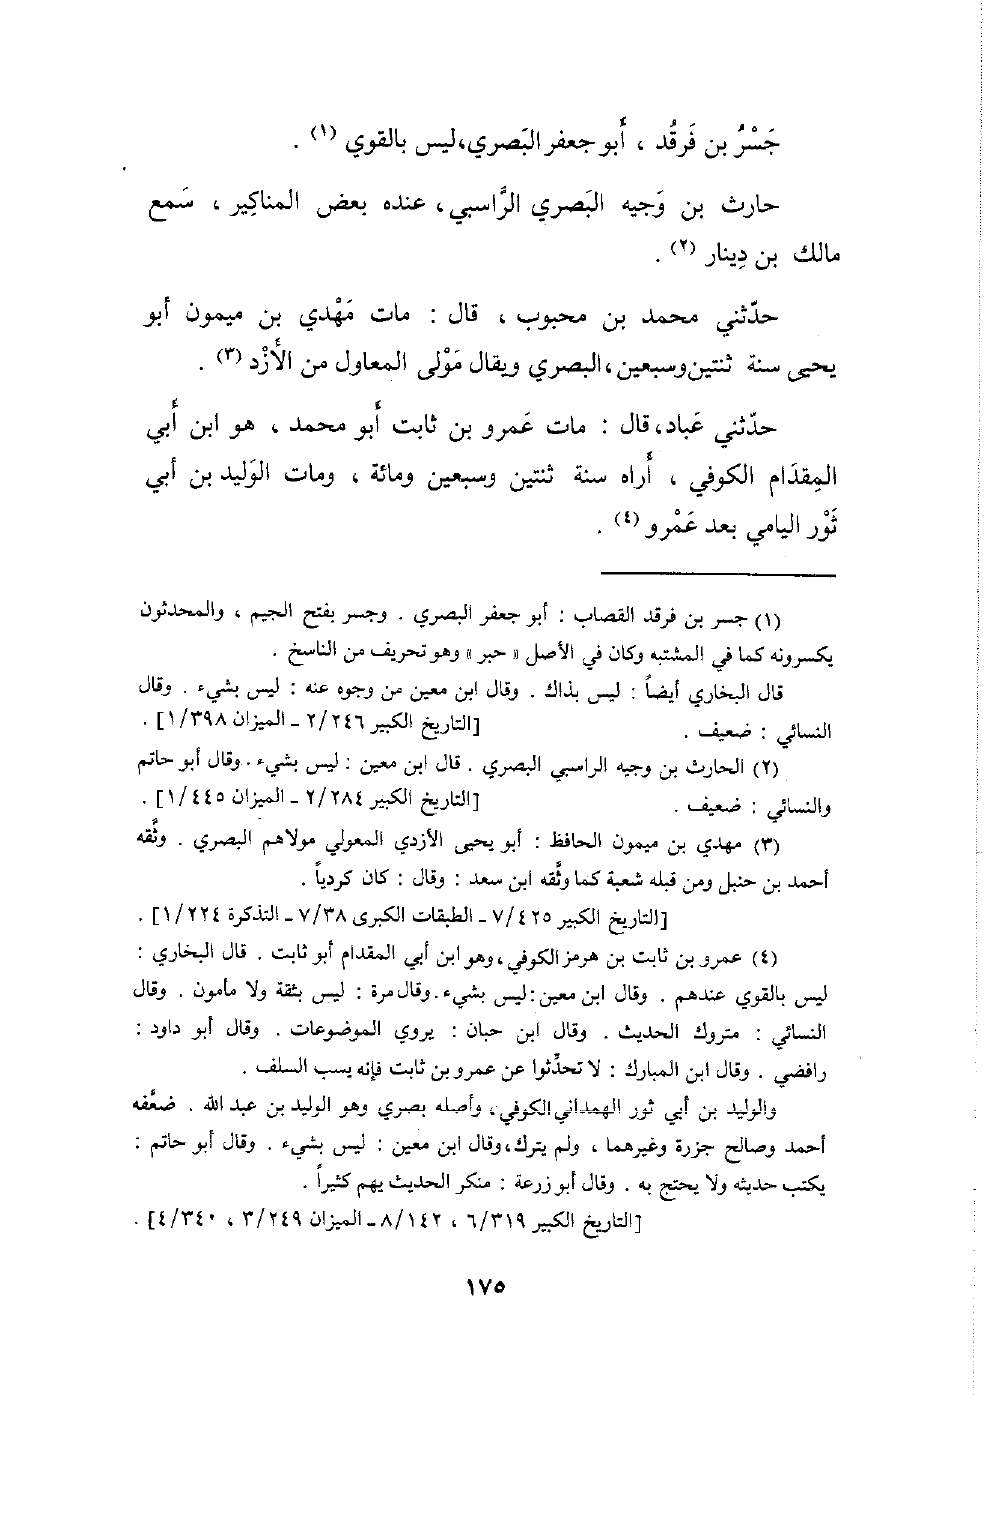 جَسْرُ بن فَرقُد ، أَبو جعفر البَصري، ليس بالقوي (١) .
حارث بن وَجيه البَصري الرَّاسبي، عنده بعض المناكِير ، سَمع
مالك بن دِينار (٢) .
حدّثني محمد بن محبوب ، قال : مات مَهْدي بن ميمون أبو
يحيى سنة ثنتين وسبعين، البصري ويقال مَوْلى المعاول من الأَزْد (٣) .
حدّثني عَباد، قال : مات عَمرو بن ثابت أَبو محمد ، هو ابن أَبي
المِقدَام الكوفي ، أَراه سنة ثنتين وسبعين ومائة ، ومات الوَليد بن أبي
ثَوْر اليامي بعد عَمْرو (٤) .
(١) جسر بن فرقد القصاب : أبو جعفر البصري . وجسر بفتح الجيم ، والمحدثون
يكسرونه كما في المشتبه وكان في الأصل « حبر » وهو تحريف من الناسخ .
قال البخاري أيضاً : ليس بذاك . وقال ابن معين من وجوه عنه : ليس بشيء . وقال
النسائي : ضعيف . [التاريخ الكبير ٢/٢٤٦ ـ الميزان ١/٣٩٨] .
(٢) الحارث بن وجيه الراسبي البصري . قال ابن معين : ليس بشيء . وقال أبو حاتم
والنسائي : ضعيف . [التاريخ الكبير ٢/٢٨٤ ـ الميزان ١/٤٤٥] .
(٣) مهدي بن ميمون الحافظ : أبو يحيى الأزدي المعولي مولاهم البصري . وثَّقه
أحمد بن حنبل ومن قبله شعبة كما وثَّقه ابن سعد : وقال : كان كردياً .
[التاريخ الكبير ٧/٤٢٥ ـ الطبقات الكبرى ٧/٣٨ ـ التذكرة ١/٢٢٤] .
(٤) عمرو بن ثابت بن هرمز الكوفي، وهو ابن أبي المقدام أبو ثابت . قال البخاري :
ليس بالقوي عندهم . وقال ابن معين : ليس بشيء . وقال مرة : ليس بثقة ولا مأمون . وقال
النسائي : متروك الحديث . وقال ابن حبان : يروي الموضوعات . وقال أبو داود :
رافضي . وقال ابن المبارك : لا تحدِّثوا عن عمرو بن ثابت فإنه يسب السلف .
والوليد بن أبي ثور الهمداني الكوفي، وأصله بصري وهو الوليد بن عبد الله . ضعَّفه
أحمد وصالح جزرة وغيرهما ، ولم يترك، وقال ابن معين : ليس بشيء . وقال أبو حاتم :
يكتب حديثه ولا يحتج به . وقال أبو زرعة : منكر الحديث يهم كثيراً .
[التاريخ الكبير ٦/٣١٩ ، ٨/١٤٢ ـ الميزان ٣/٢٤٩ ، ٤/٣٤٠] .
١٧٥